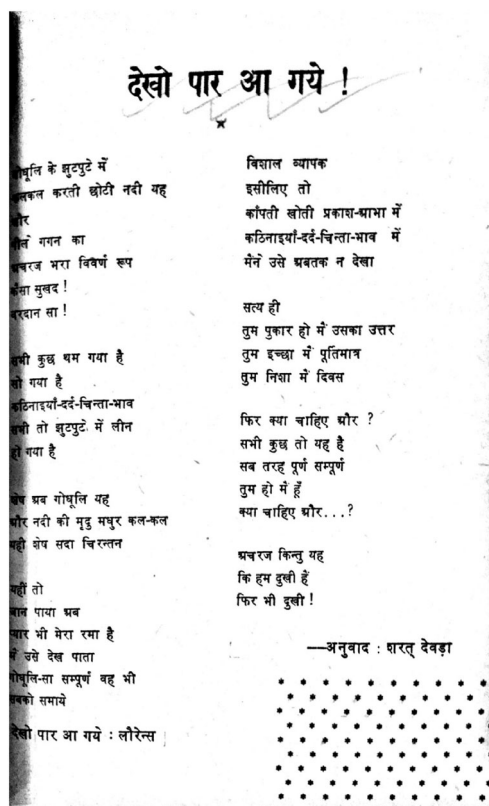 देखो पार आ गये !
गोधूलि के झुटपुटे में
कलकल करती छोटी नदी यह
और
नीले गगन का
अचरज भरा विवर्ण रूप
कैसा सुखद !
वरदान सा !
सभी कुछ थम गया है
सो गया है
कठिनाइयाँ-दर्द-चिन्ता-भाव
सभी तो झुटपुटे में लीन
हो गया है
शेष अब गोधूलि यह
और नदी की मृदु मधुर कल-कल
यही शेष सदा चिरन्तन
यहीं तो
जान पाया अब
प्यार भी मेरा रमा है
मैं उसे देख पाता
गोधूलि-सा सम्पूर्ण वह भी
सबको समाये
देखो पार आ गये : लौरेन्स
विशाल व्यापक
इसीलिए तो
काँपती खोती प्रकाश-आभा में
कठिनाइयाँ-दर्द-चिन्ता-भाव में
मैंने उसे अबतक न देखा
सत्य ही
तुम पुकार हो मैं उसका उत्तर
तुम इच्छा मैं पूर्तिमात्र
तुम निशा मैं दिवस
फिर क्या चाहिए और ?
सभी कुछ तो यह है
सब तरह पूर्ण सम्पूर्ण
तुम हो मैं हूँ
क्या चाहिए और...?
अचरज किन्तु यह
कि हम दुखी हैं
फिर भी दुखी !
—अनुवाद : शरत् देवड़ा